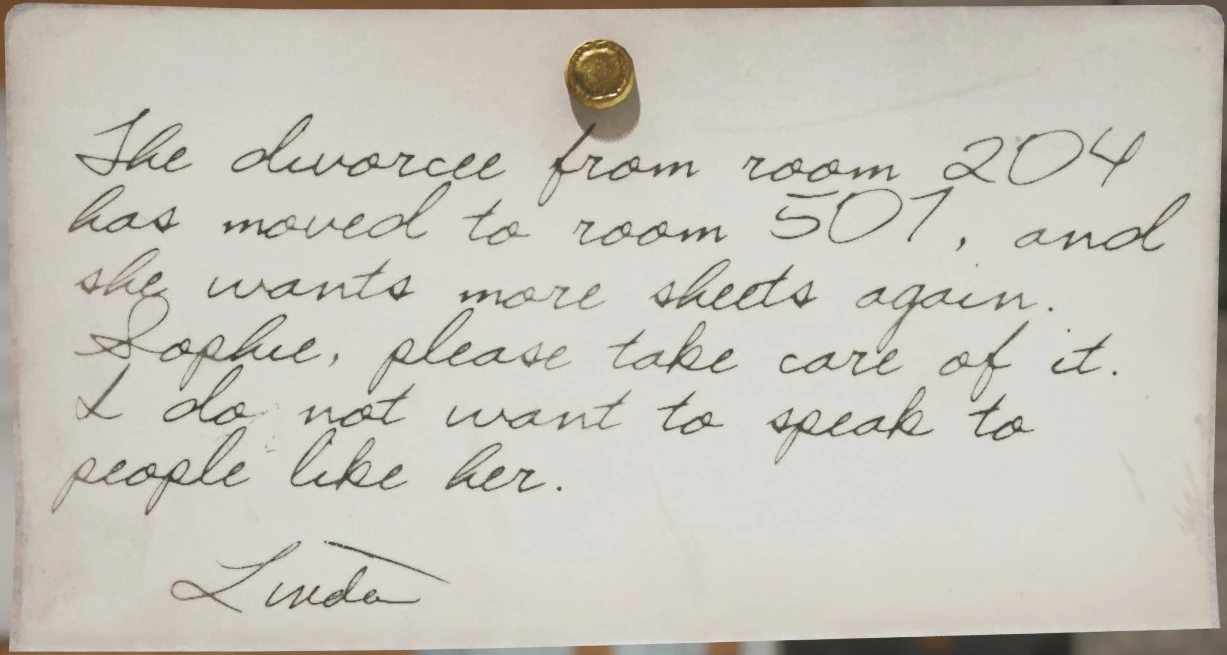 The divorcee from room 204
has moved to room 501, and
she wants more sheets again.
Sophie, please take care of it.
I do not want to speak to
people like her.
Linda